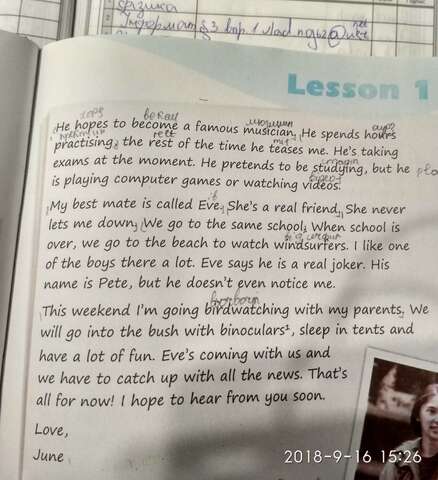 фізика
Інформат §3 впр. 1
Lesson 1
He hopes to become a famous musician. He spends hours
practising, the rest of the time he teases me. He's taking
exams at the moment. He pretends to be studying, but he
is playing computer games or watching videos.
My best mate is called Eve. She's a real friend. She never
lets me down. We go to the same school. When school is
over, we go to the beach to watch windsurfers. I like one
of the boys there a lot. Eve says he is a real joker. His
name is Pete, but he doesn't even notice me.
This weekend I'm going birdwatching with my parents. We
will go into the bush with binoculars¹, sleep in tents and
have a lot of fun. Eve's coming with us and
we have to catch up with all the news. That's
all for now! I hope to hear from you soon.
Love,
June
2018-9-16 15:26